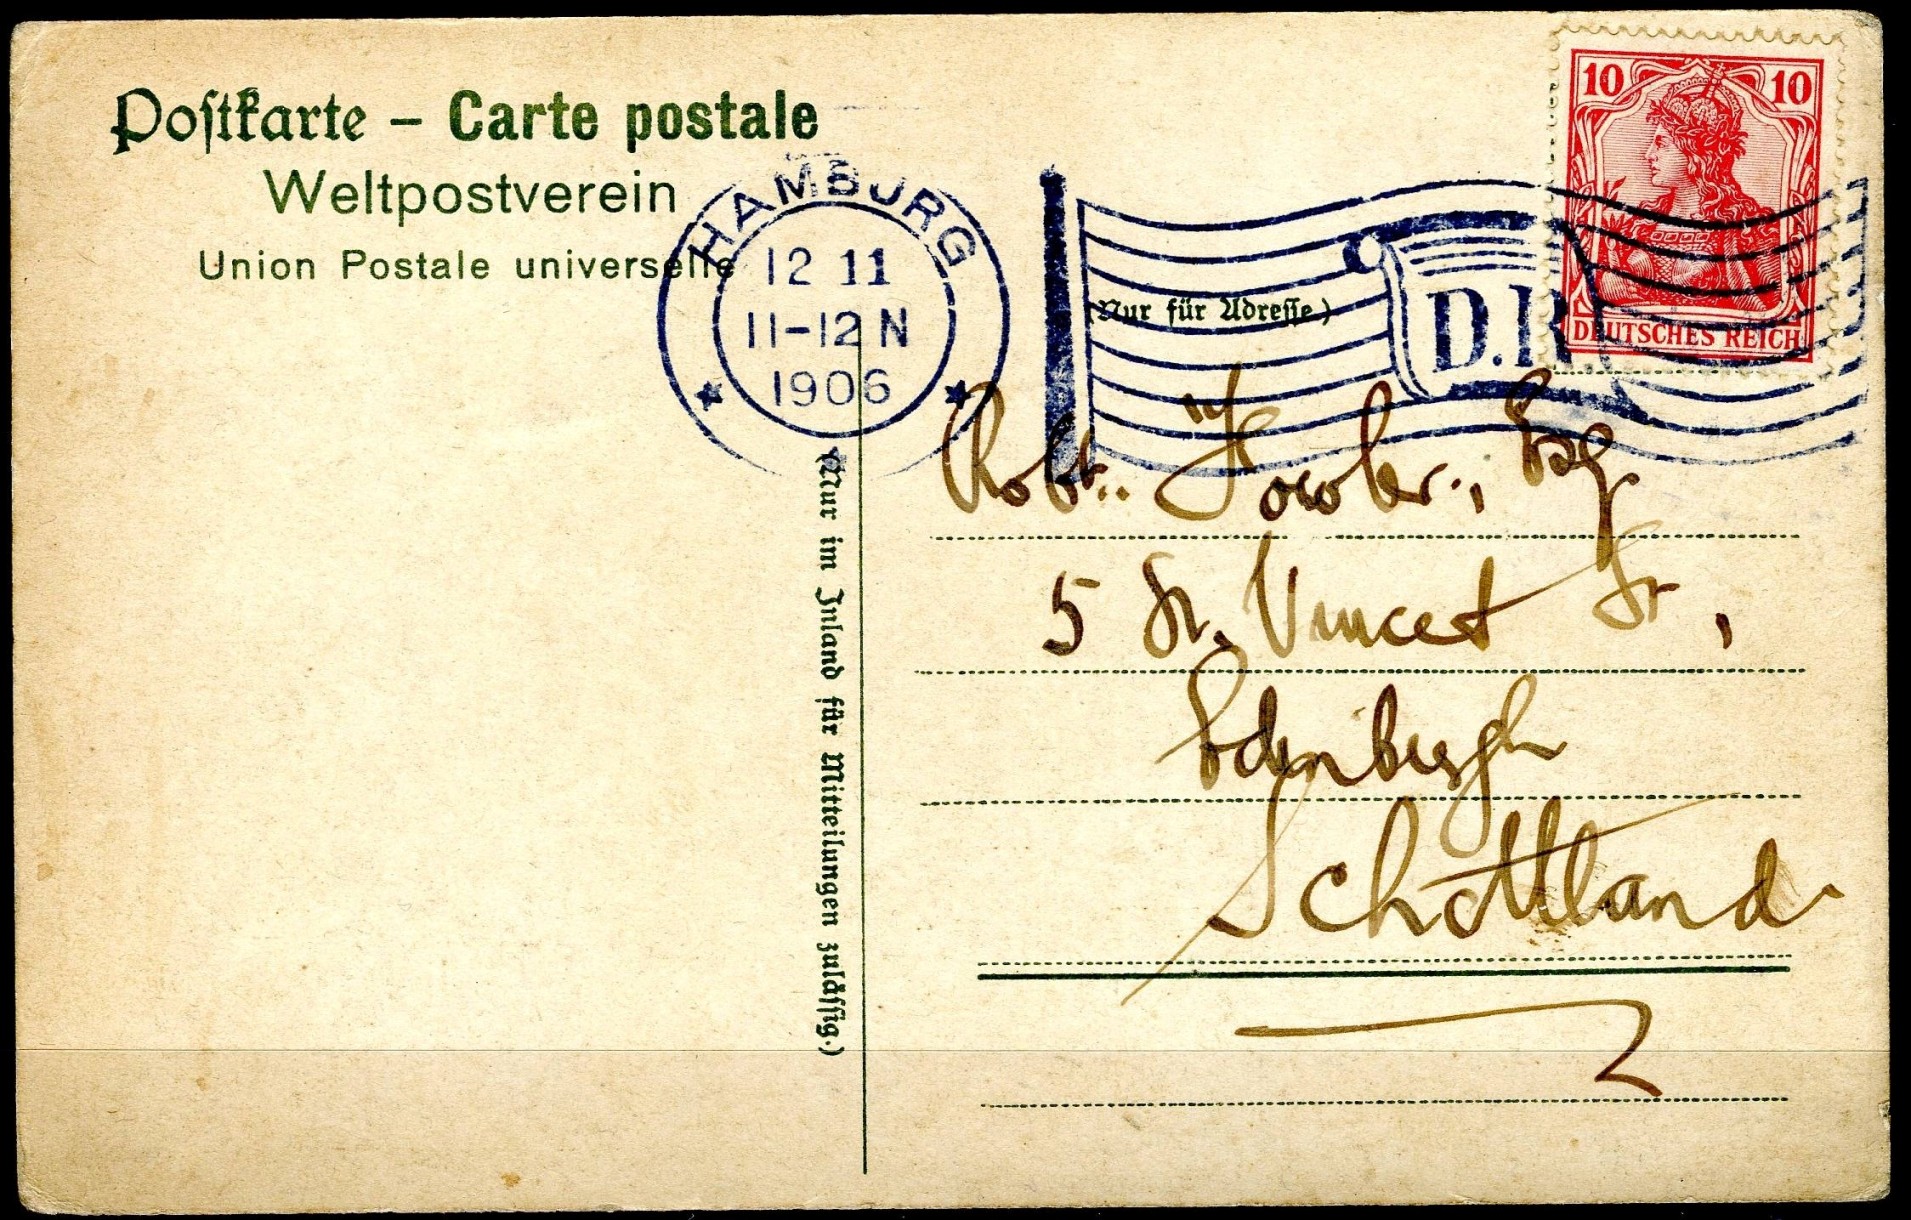 Postkarte – Carte postale
Weltpostverein
Union Postale universelle
HAMBURG
12 11
11-12 N
1906
(Nur für Adresse.)
D.R.
10 10
DEUTSCHES REICH
(Nur im Inland für Mitteilungen zulässig.)
Robt. Fowler, Esq.
5 St. Vincet St,
Edinburgh
Schottland.